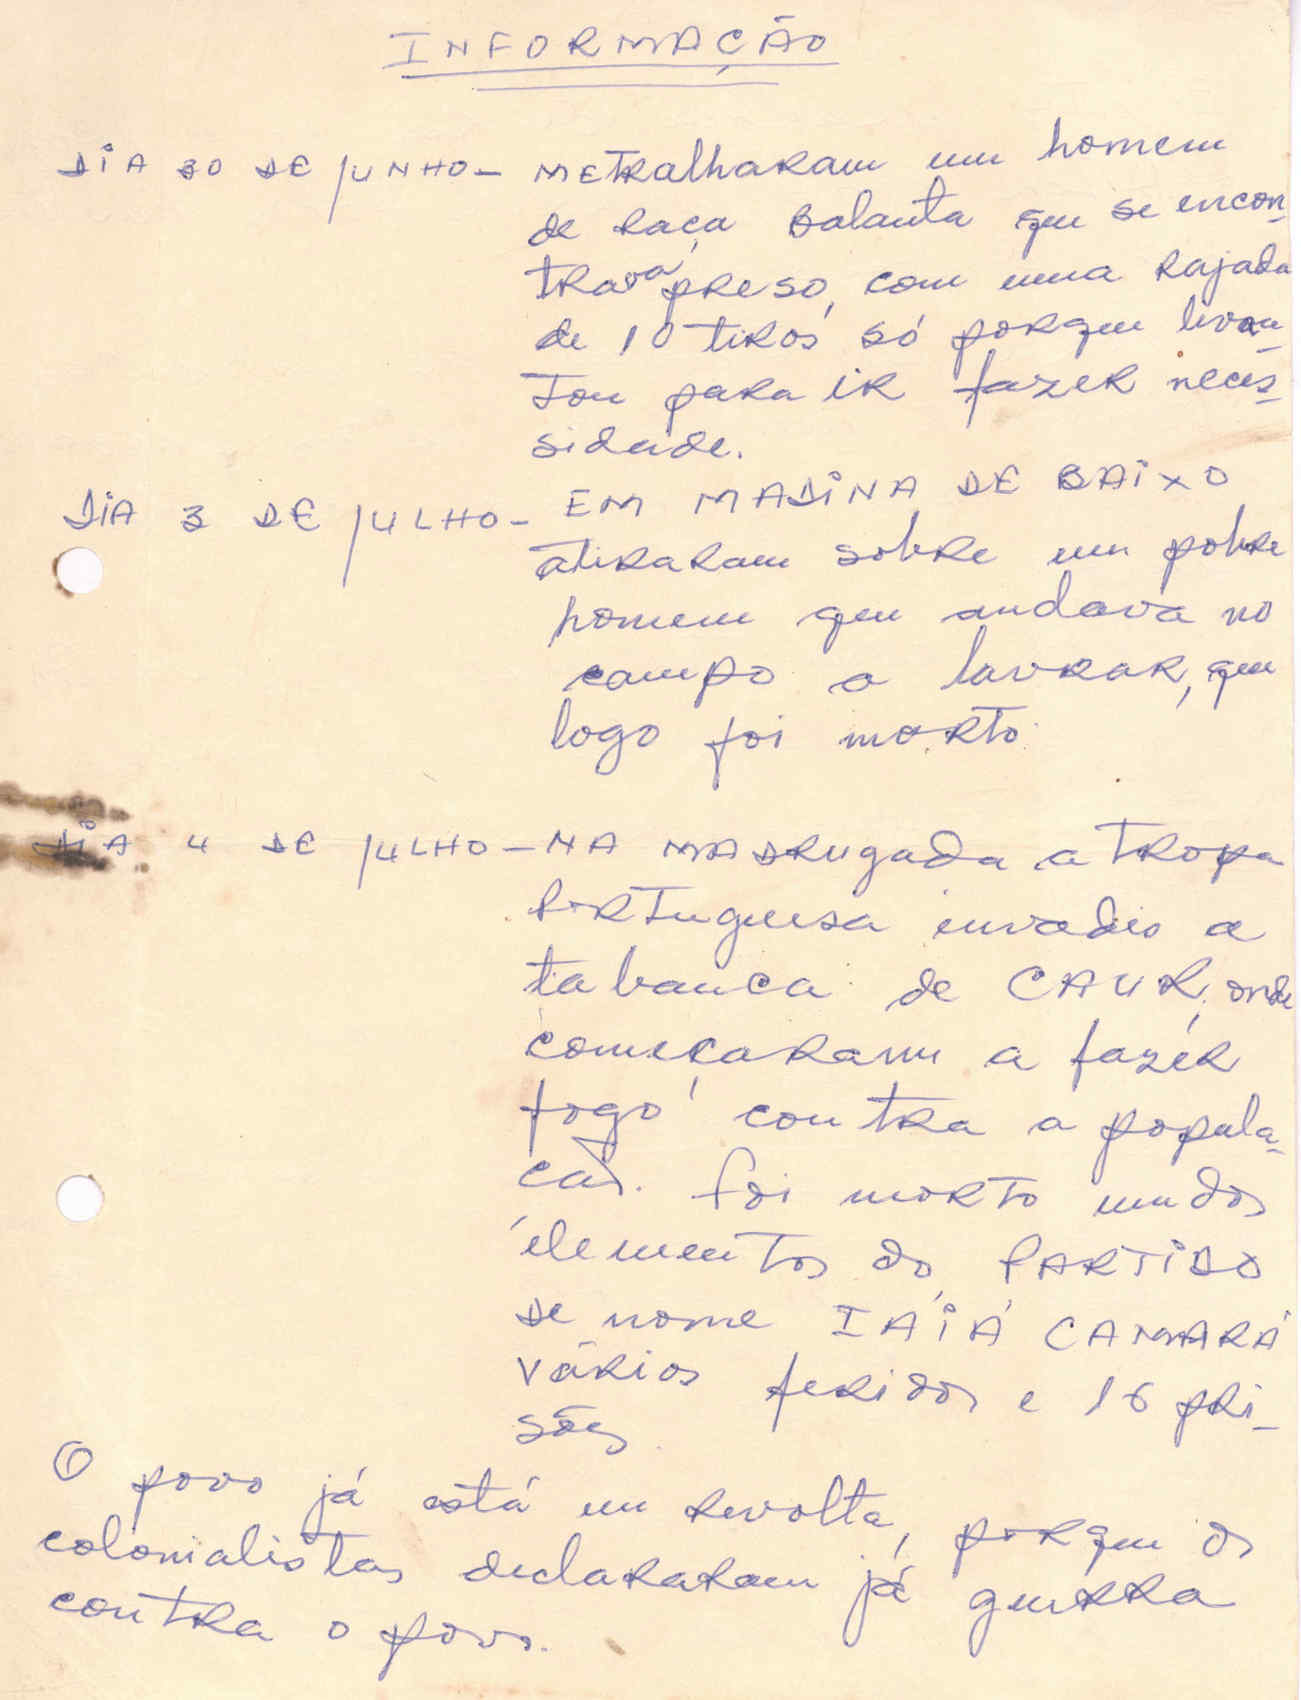 INFORMAÇÃO
DIA 30 DE JUNHO - METRalhaRam um homem
de Raça Balanta que se encon-
trava preso, com uma Rajada
de 10 tiros só porque levan-
tou para ir fazer neces-
sidade.
DIA 3 DE JULHO - EM MADINA DE BAIXO
atiraram sobre um pobre
homem que andava no
campo a lavrar, que
logo foi morto.
DIA 4 DE JULHO - NA MADRugada a tropa
Portuguesa invadio a
tabanca de CAUR, onde
começaram a fazer
fogo contra a popula-
ção. Foi morto um dos
elementos do PARTIDO
de nome IÁIÁ CAMARÁ
vários feridos e 16 pri-
sões.
O povo já está em Revolta, porque os
colonialistas declararam já guerra
contra o povo.